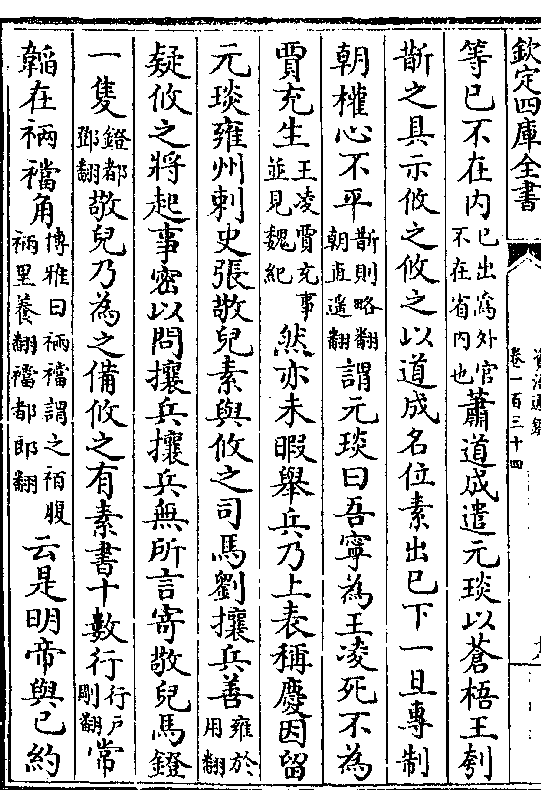 欽定四庫全書
資治通鑑
卷一百三十四
等已不在内已出為外官不在省内也蕭道成遣元琰以蒼梧王刳
斮之具示攸之攸之以道成名位素出已下一旦專制
朝權心不平斮則略翻朝直遥翻謂元琰曰吾寧為王凌死不為
賈充生王凌賈充事並見魏紀然亦未暇舉兵乃上表稱慶因留
元琰雍州刺史張敬兒素與攸之司馬劉攘兵善雍於用翻
疑攸之將起事密以問攘兵攘兵無所言寄敬兒馬鐙
一隻鐙都鄧翻敬兒乃為之備攸之有素書十數行行戸剛翻常
韜在裲襠角博雅曰裲襠謂之袹腹裲里養翻襠都郎翻云是明帝與已約